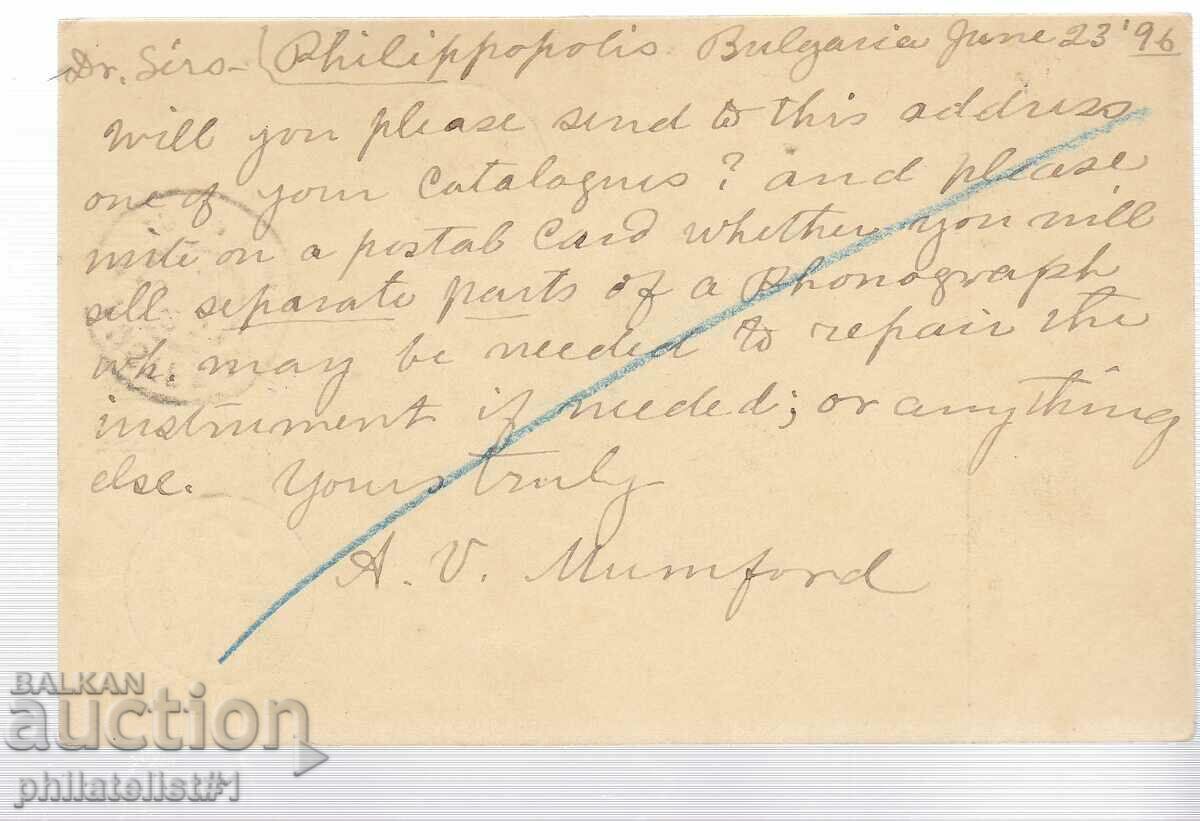 Dr. Sirs- (Philippopolis. Bulgaria June 23 '96
Will you please send to this address
one of your Catalogues? and please
write on a postal Card whether you will
sell separate parts of a Phonograph
wh. may be needed to repair the
instrument if needed; or anything
else. Yours truly
A. V. Mumford
BALKAN
auction
philatelist#1